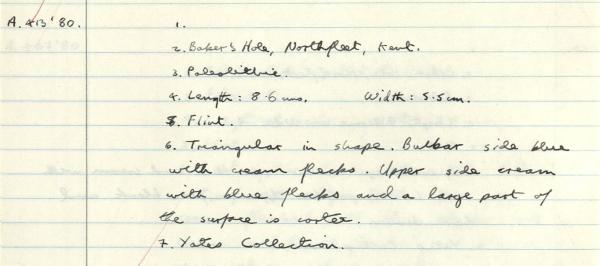 A. 413 '80. 1.
2. Baker's Hole, Northfleet, Kent.
3. Paleolithic.
4. Length: 8.6 cms. Width: 5.5 cm.
5. Flint.
6. Triangular in shape. Bulbar side blue
with cream flecks. Upper side cream
with blue flecks and a large part of
the surface is cortex.
7. Yates Collection.